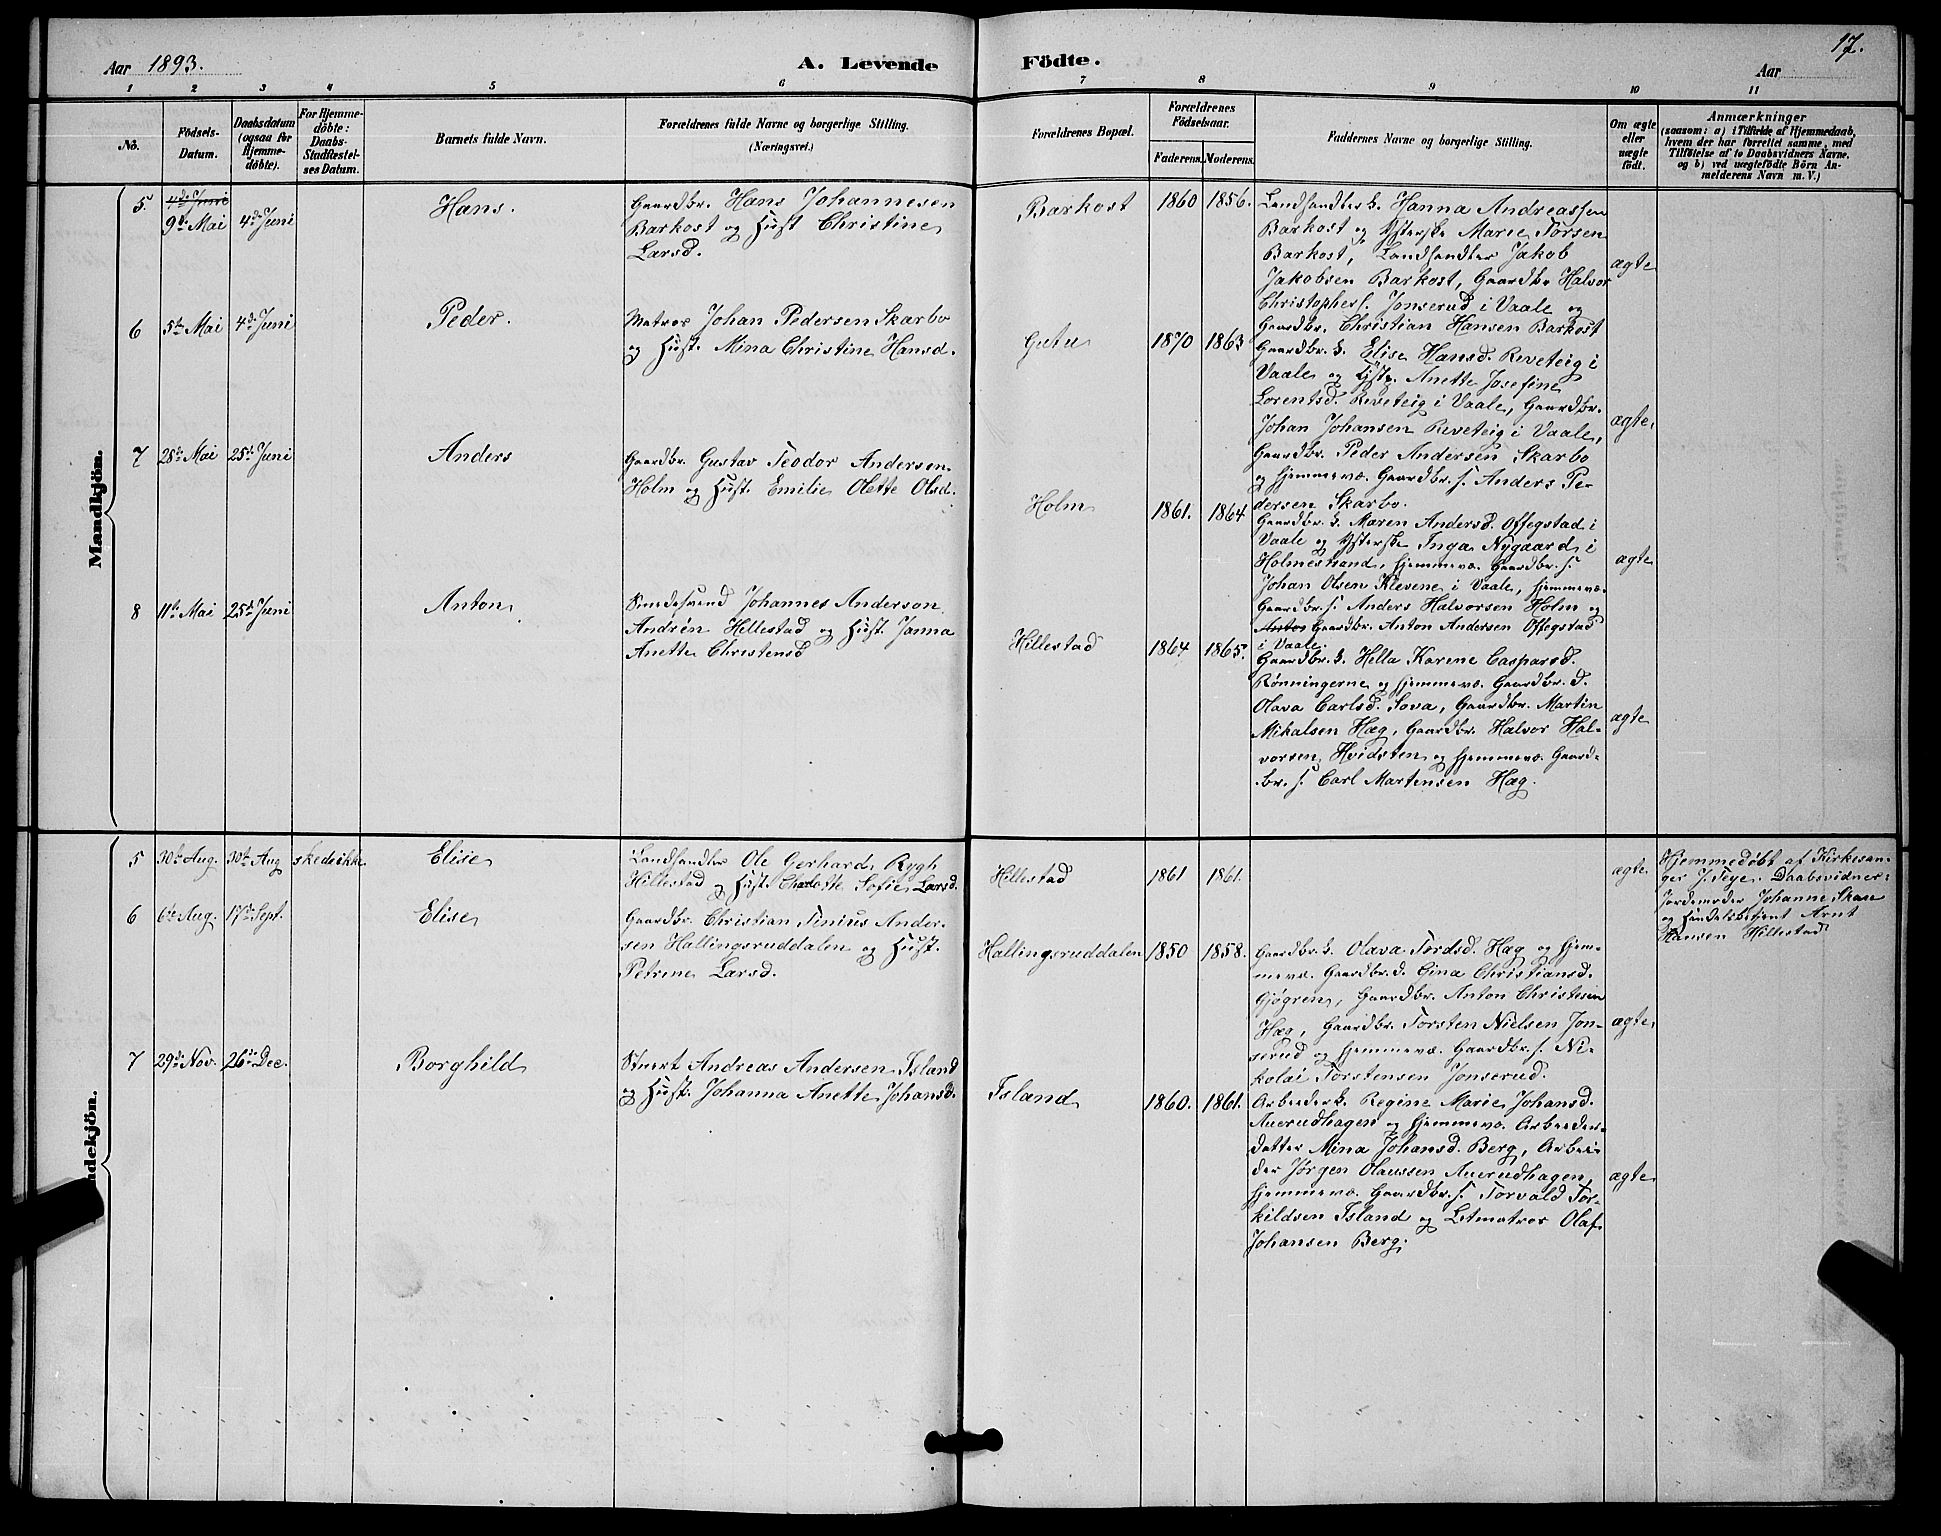 17.
Aar 1893. A. Levende Födte. Aar
1 2 3 4 5 6 7 8 9 10 11
No. Födsels-Datum. Daabsdatum (ogsaa for Hjemme-döbte). For Hjemme-döbte: Daabs-Stadfæstel-ses Datum. Barnets fulde Navn. Forældrenes fulde Navne og borgerlige Stilling. (Næringsvei.) Forældrenes Bopæl. Forældrenes Födselsaar. Faderens. Moderens. Faddernes Navne og borgerlige Stilling. Om ægte eller uægte födt. Anmærkninger (saasom: a) i Tilfælde af Hjemmedaab, hvem der har forrettet samme, med Tilföielse af to Daabsvidners Navne, og b) ved uægtefödte Börn An-melderens Navn m. V.)
Mandkjön.
5. 4de Juni
9de Mai 4de Juni Hans.
Gaardbr. Hans Johannesen
Barkost og Hust Christine
Larsd.
Barkost 1860 1856.
Landhandlersk. Hanna Andreassen
Barkost og Ysterske Marie Torsen
Barkost, Landhandler Jakob
Jakobsen Barkost, Gaardbr Halvor
Christophers. Jonserud i Vaale og
Gaardbr. Christian Hansen Barkost
ægte
6 5te Mai 4de Juni Peder.
Matros Johan Pedersen Skarbo
og Hust. Mina Christine Hansd.
Gutu 1870 1863
Gaardbr.k. Elise Hansd. Reveteig i
Vaale og Anette Josefine
Lorentsd. Reveteig i Vaale, Gaardbr.
Johan Johansen Reveteig i Vaale,
Gaardbr. Peder Andersen Skarbo
og hjemmevæ. Gaardbr.s. Anders Pe-
dersen Skarbo.
ægte,
7 28de Mai 25de Juni Anders
Gaardbr. Gustav Teodor Andersen
Holm og Hust. Emilie Olette Olsd.
Holm 1861. 1864
Gaardbr.k. Maren Andersd. Offegstad i
Vaale og Ysterske Inga Nygaard i
Holmestrand, hjemmevæ. Gaardbr.s.
Johan Olsen Klevene i Vaale, hjemmevæ.
Gaardbr.s. Anders Halvorsen Holm og
Anton Gaardbr. Anton Andersen Offegstad
i Vaale.
ægte
8 11te Mai 25de Juni Anton
Smedesvend Johannes Anderson
Andrén Hillestad og Hust. Janna
Anette Christensd
Hillestad 1864 1865.
Gaardbr.k. Hella Karene Caspersd.
Rønningerne og hjemmevæ. Gaardbr. d.
Olava Carlsd. Sova, Gaardbr. Martin
Mikalsen Hæg, Gaardbr. Halvor Hal-
vorsen Hvidsten og hjemmevæ. Gaard-
br. s. Carl Martensen Hæg.
ægte
5 30te Aug. 30te Aug skede ikke Elise
Landhandler Ole Gerhard Rygh
Hillestad og Hust. Charlotte Sofie Larsd.
Hillestad 1861 1861.
ægte.
Hjemmedøbt af Kirkesan-
ger J. Teye. Daabsvidner:
Jordemoder Johanne Skare
og Handelsbetjent Arnt
Hansen Hillestad
6 6te Aug. 17de Sept. Elise
Gaardbr. Christian Tinius Ander-
sen Hallingsruddalen og Hust.
Petrine Larsd.
Hallingsruddalen 1850 1858.
Gaardbr.k. Olava Tordsd. Hæg og hjem-
mevæ. Gaardbr. d. Gina Christiansd.
Gjøgren, Gaardbr. Anton Christesen
Hæg, Gaardbr. Torsten Nielsen Jon-
serud og hjemmevæ. Gaardbr.s. Ni-
kolai Torstensen Jonserud.
ægte,
7 29de Nov. 26de Dec. Borghild
Stuert Andreas Andersen Island
og Hust. Johanna Anette Johansd.
Island 1860. 1861.
Arbeidersk. Regine Marie Johansd.
Auerudhagen og hjemmevæ. Arbeider-
datter Mina Johansd. Berg, Arbei-
der Jørgen Olaussen Auerudhagen,
hjemmevæ. Gaardbr.s. Torvald Tor-
kildsen Island og Letmatros Olaf
Johansen Berg.
ægte